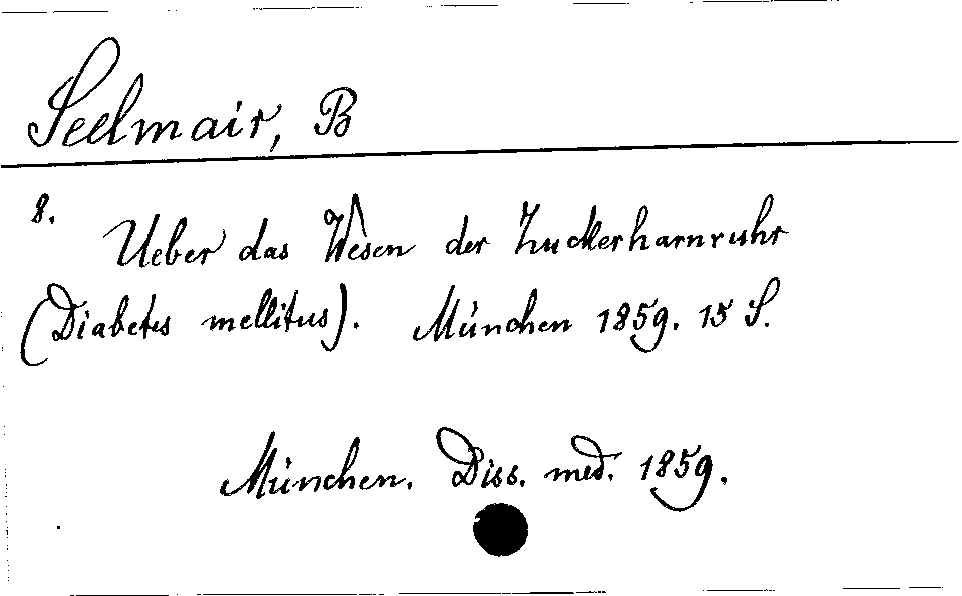 Seelmair, B
8. Ueber das Wesen der Zuckerharnruhr
(Diabetes mellitus). München 1859. 15 S.
München. Diss. med. 1859.